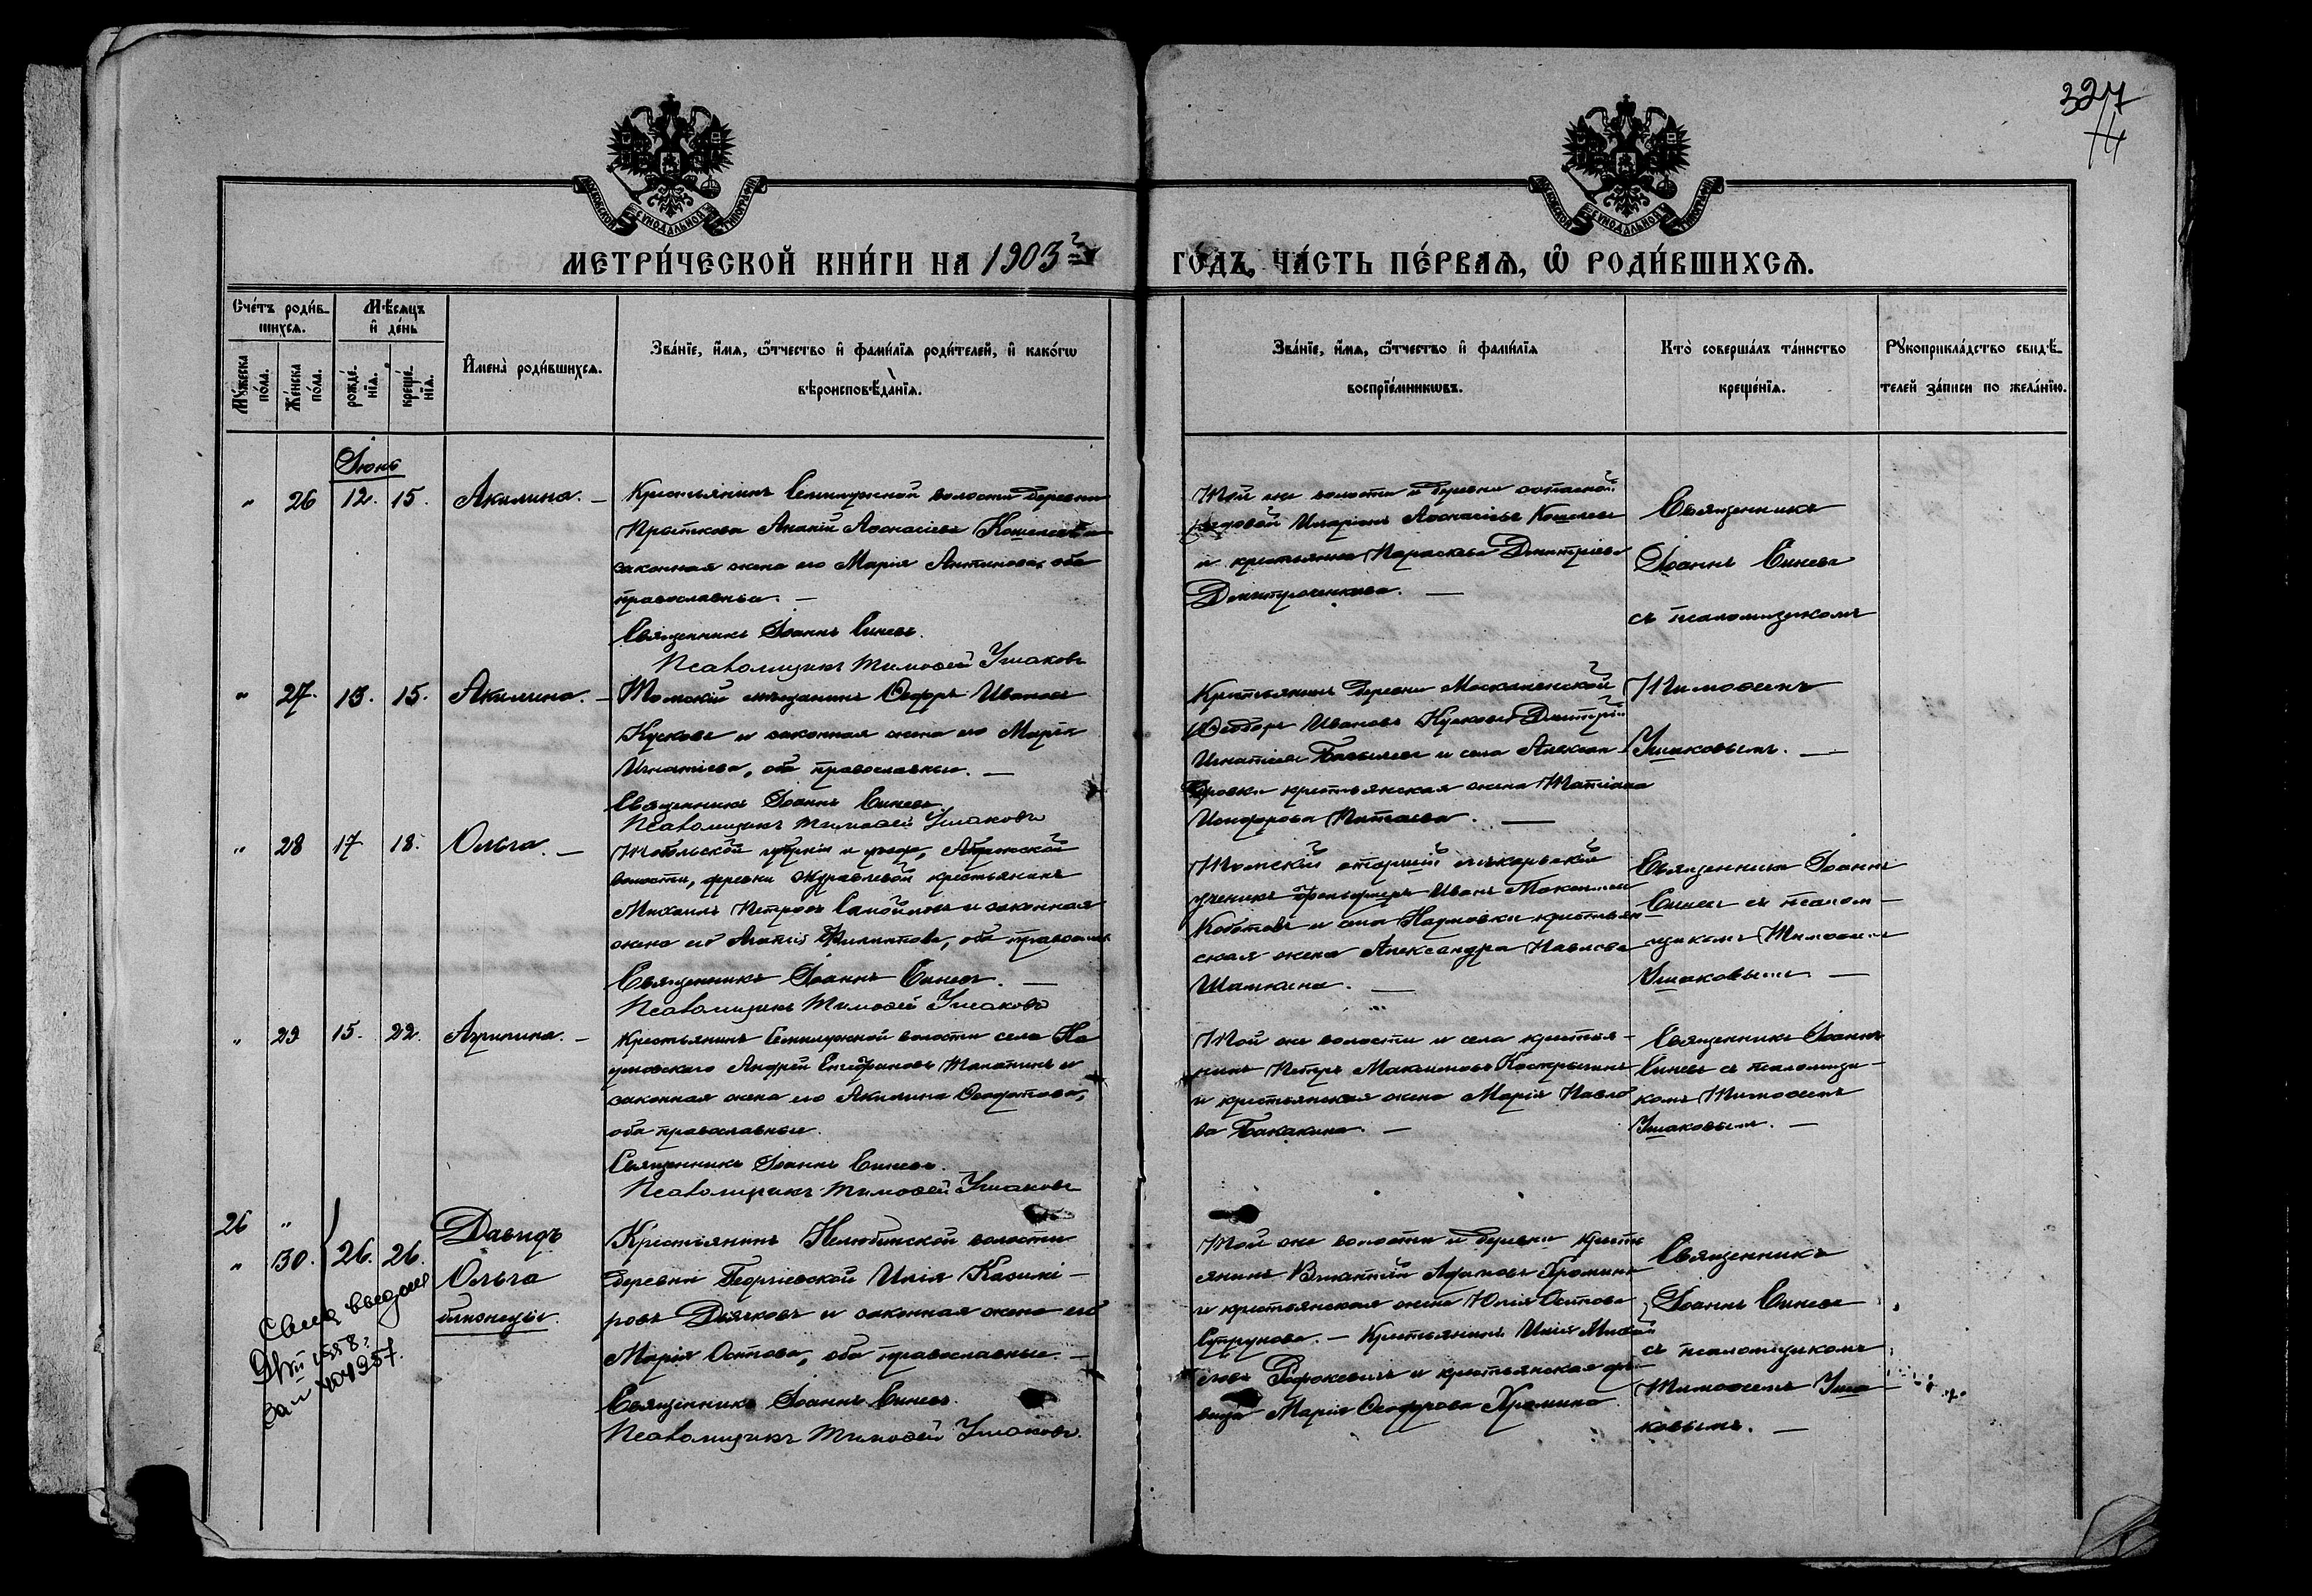 327
МЕТРИ́ЧЕСКОЙ КНИ́ГИ НА 1903 г.
ГО́ДЪ, ЧА́СТЬ ПЕ́РВАѦ, Ѽ РОДИ́ВШИХСѦ.
Сче́тъ роди́в-
шихсѧ.
Мѣ́сѧцъ
и҆ де́нь
Мꙋ́жеска по́ла.
Же́нска по́ла.
рожде́-
нїѧ.
креще́-
нїѧ.
И҆мена̀ роди́вшихсѧ.
Зва́нїе, и҆́мѧ, ѻ҆́тчество и҆ фами́лїѧ роди́телей, и҆ како́гѡ
вѣроисповѣ́данїѧ.
Зва́нїе, и҆́мѧ, ѻ҆́тчество и҆ фами́лїѧ
воспрїе́мникѡвъ.
Кто̀ соверша́лъ та́инство
креще́нїѧ.
Рꙋкоприкла́дство свидѣ́-
телей за́писи по жела́нїю.
Іюнь
" 26 12. 15. Акилина. —
Крестьянинъ Семилужной волости деревни
Ананій Аѳанасіевъ Кошелевъ и
законная жена его Марія Антипова, оба
православные. —
Священникъ Іоаннъ Синевъ.
Псаломщикъ Тимоѳей Ушаковъ
Той же волости и деревни
рядовой Иларіонъ Аѳанасіевъ Кошелевъ
и крестьянка Параскева Дмитріева
Священникъ
Іоаннъ Синевъ
съ псаломщикомъ
Тимоѳеемъ
Ушаковымъ. —
" 27. 13. 15. Акилина. —
Томскій мѣщанинъ Ѳеодоръ Ивановъ
Кусковъ и законная жена его Марія
Игнатіева, оба православные. —
Священникъ Іоаннъ Синевъ.
Псаломщикъ Тимоѳей Ушаковъ
Крестьянинъ деревни
Ѳеодоръ Ивановъ Кусковъ Дмитрій
Игнатіевъ и села Алексан-
дровки крестьянская жена Татіана
" 28 17 18. Ольга. —
Тобольской губерніи и уѣзда,
волости, деревни Журавлевой крестьянинъ
Михаилъ Петровъ Самойловъ и законная
жена его Филиппова, оба православ.
Священникъ Іоаннъ Синевъ. —
Псаломщикъ Тимоѳей Ушаковъ
Томскій старшій лѣкарскій
ученикъ фельдшеръ Иванъ
и села Наумовки крестьян-
ская жена Александра Павлова
Шамкина. —
Священникъ Іоаннъ
Синевъ съ псалом-
щикомъ Тимоѳеемъ
Ушаковымъ —
" 29 15. 22. Агрипина. —
Крестьянинъ Семилужной волости села На-
умовскаго Андрей Епифановъ и
законная жена его Акилина Ѳеодотова,
оба православные.
Священникъ Іоаннъ Синевъ.
Псаломщикъ Тимоѳей Ушаковъ
Той же волости и села крестья-
нинъ Петръ Максимовъ Кострыкинъ
и крестьянская жена Марія Павло-
ва Бакакина. —
Священникъ Іоаннъ
Синевъ съ псаломщи-
комъ Тимоѳеемъ
Ушаковымъ. —
26 " Давидъ
" 30. 26. 26. Ольга
близнецы.
Крестьянинъ Нелюбинской волости
деревни Георгіевской Илія Казимі-
ровъ Дьячковъ и законная жена его
Марія Остова, оба православные. —
Священникъ Іоаннъ Синевъ.
Псаломщикъ Тимоѳей Ушаковъ.
Той же волости и деревни кресть-
янинъ Викентій Адамовъ Хроминъ
и крестьянская жена Юлія Остова
Супрунова. — Крестьянинъ Илія
и крестьянская дѣ-
вица Марія Ѳеодорова Хромина
Священникъ
Іоаннъ Синевъ
съ псаломщикомъ
Тимоѳеемъ Уша-
ковымъ. —